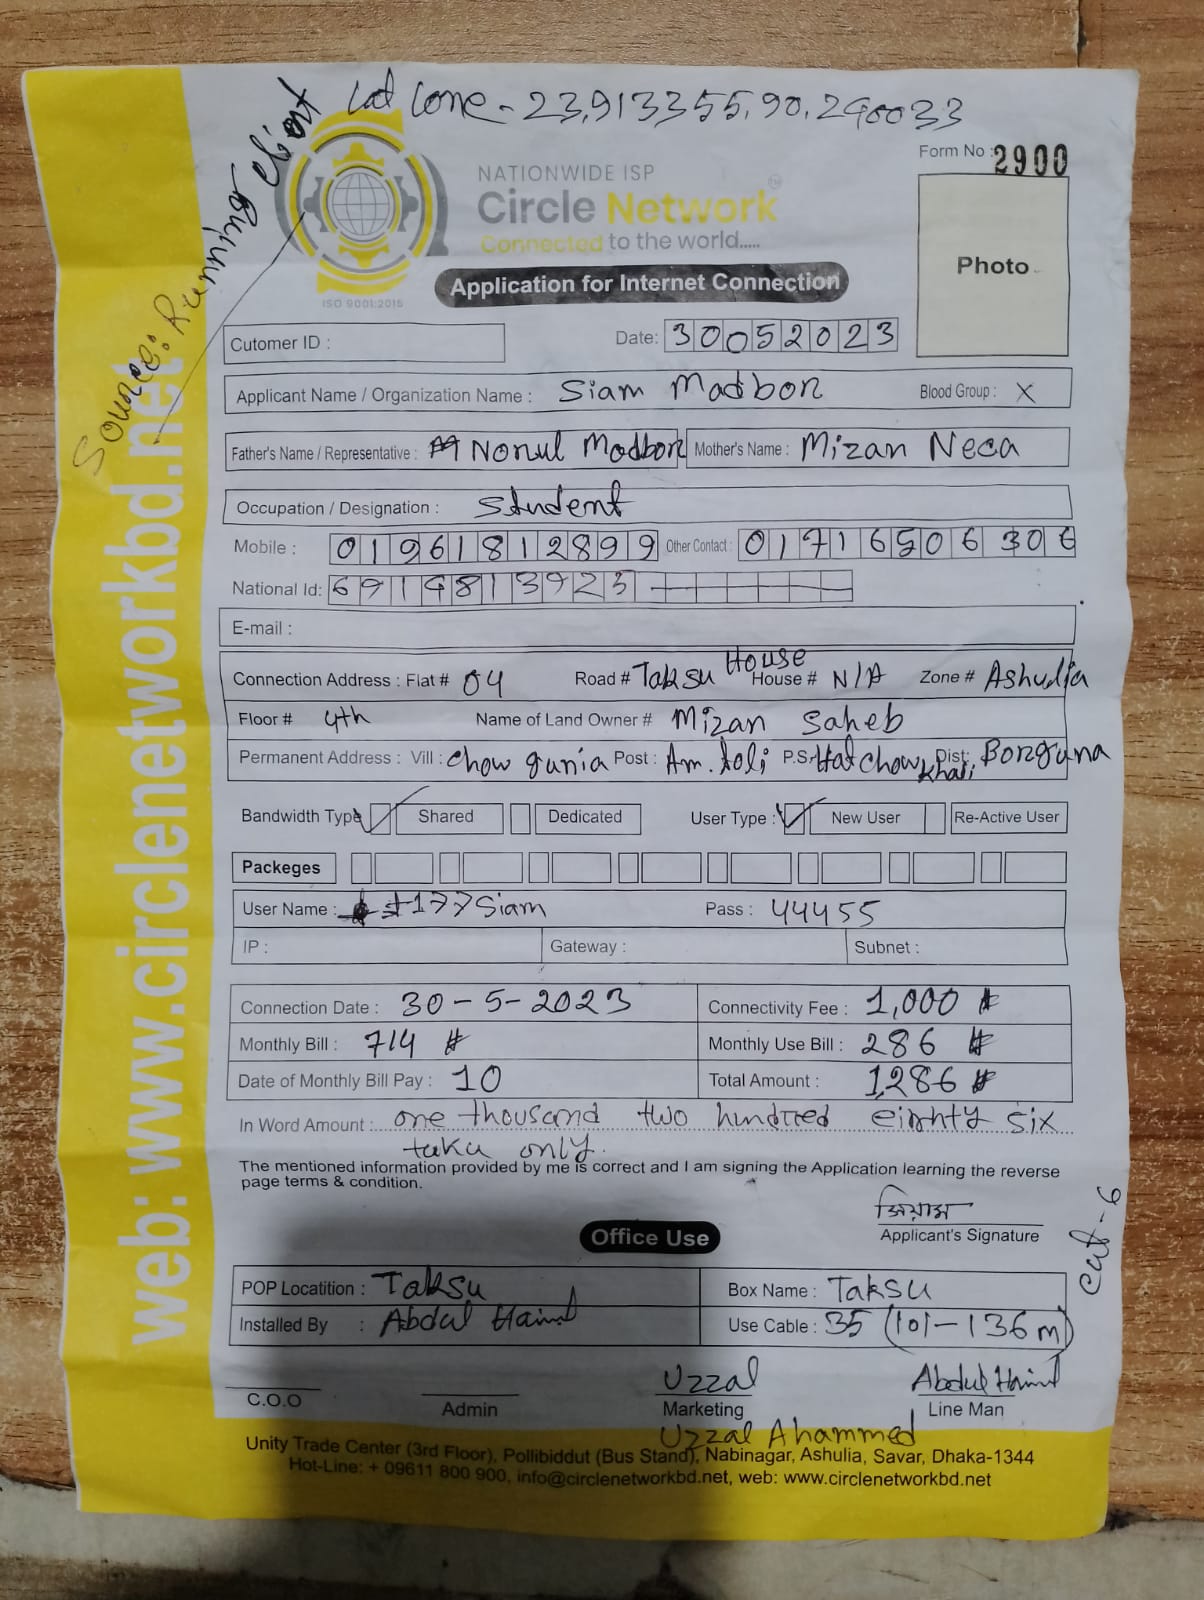 Lat Lone - 23.913355, 90.290033
Source: Running client
Form No : 2900
NATIONWIDE ISP
Circle Network
Connected to the world.....
ISO 9001:2015
Photo
Application for Internet Connection
Cutomer ID :
Date: 30052023
Applicant Name / Organization Name : Siam Madbor Blood Group : X
Father's Name / Representative : Nonul Madbor Mother's Name : Mizan Neca
Occupation / Designation : Student
Mobile : 01961812899 Other Contact : 01716506306
National Id: 6919813923
E-mail :
Connection Address : Flat # 04 Road # Taksu House House # N/A Zone # Ashulia
Floor # 4th Name of Land Owner # Mizan Saheb
Permanent Address : Vill : Chow gunia Post : Am.toli P.S: Hat Chowkhali Dist: Borguna
Bandwidth Type Shared Dedicated User Type : New User Re-Active User
Packeges
User Name : 177Siam Pass : 44455
IP : Gateway : Subnet :
Connection Date : 30-5-2023 Connectivity Fee : 1,000 #
Monthly Bill : 714 # Monthly Use Bill : 286 #
Date of Monthly Bill Pay : 10 Total Amount : 1286 #
In Word Amount : one thousand two hundred eighty six
taka only.
The mentioned information provided by me is correct and I am signing the Application learning the reverse
page terms & condition.
সিয়াম
Applicant's Signature
cat-6
Office Use
POP Locatition : Taksu Box Name : Taksu
Installed By : Abdul Hamid Use Cable : 35 (101-136 m)
Uzzal Abdul Hamid
C.O.O Admin Marketing Line Man
Uzzal Ahammed
Unity Trade Center (3rd Floor), Pollibiddut (Bus Stand), Nabinagar, Ashulia, Savar, Dhaka-1344
Hot-Line: + 09611 800 900, info@circlenetworkbd.net, web: www.circlenetworkbd.net
web: www.circlenetworkbd.net